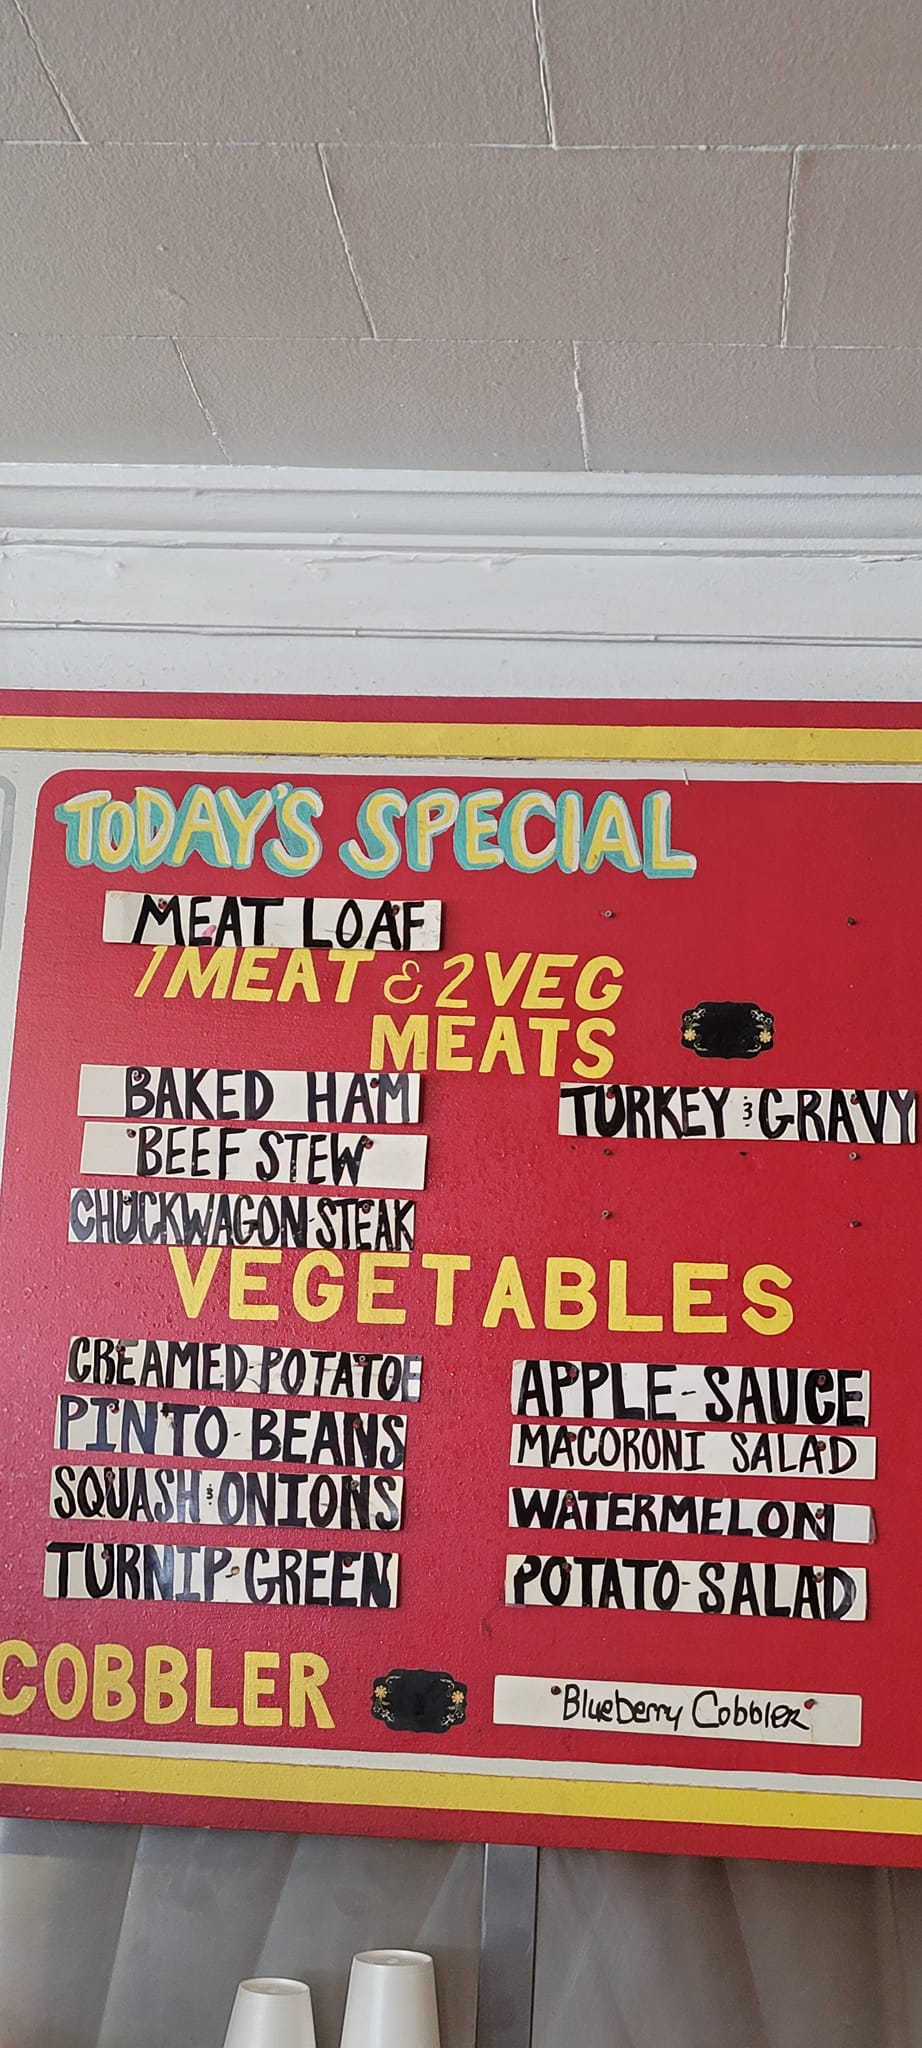 TODAY'S SPECIAL
MEAT LOAF
1 MEAT & 2 VEG
MEATS
BAKED HAM
TURKEY & GRAVY
BEEF STEW
CHUCKWAGON-STEAK
VEGETABLES
CREAMED-POTATOE
APPLE-SAUCE
PINTO-BEANS
MACORONI SALAD
SQUASH & ONIONS
WATERMELON
TURNIP-GREEN
POTATO-SALAD
COBBLER
Blueberry Cobbler